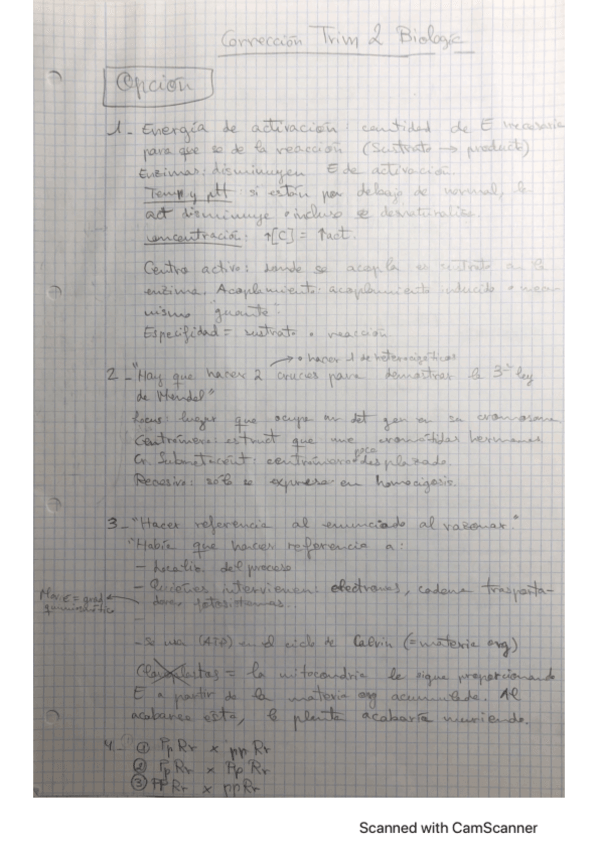 Corrección Trim 2 Biología
Opción
1- Energía de activación: cantidad de E necesaria
para que se de la reacción (Sustrato → product)
Enzimas: disminuyen E de activación.
Temp y pH: si están por debajo de normal, la
act disminuye e incluso se desnaturaliza.
concentración: ↑[C] = ↑act.
Centro activo: donde se acopla el sustrato en la
enzima. Acoplamiento: acoplamiento inducido o
guante.
Especifidad = sustrato o reacción
→ o hacer 1 de heterocigóticos
2- "Hay que hacer 2 cruces para demostrar la 3ª ley
de Mendel"
Locus: lugar que ocupa un det gen en su cromosoma
Centrómero: estruct que une cromátidas hermanas.
Cr. Submetacént: centrómero poco desplazado.
Recesivo: solo se expresa en homocigosis.
3- "Hacer referencia al enunciado al razonar."
"Había que hacer referencia a:
- Localiz. del proceso
- Quiénes intervienen: electrones, cadena trasporta-
dora, fotosistemas..
- Se usa (ATP) en el ciclo de Calvin (= materia org)
= la mitocondria le sigue proporcionando
E a partir de la materia org acumulada. Al
acabarse esta, la planta acabaría muriendo.
4- ① Pp Rr x pp Rr
② Pp Rr x Pp Rr
③ PP Rr x pp Rr
Scanned with CamScanner